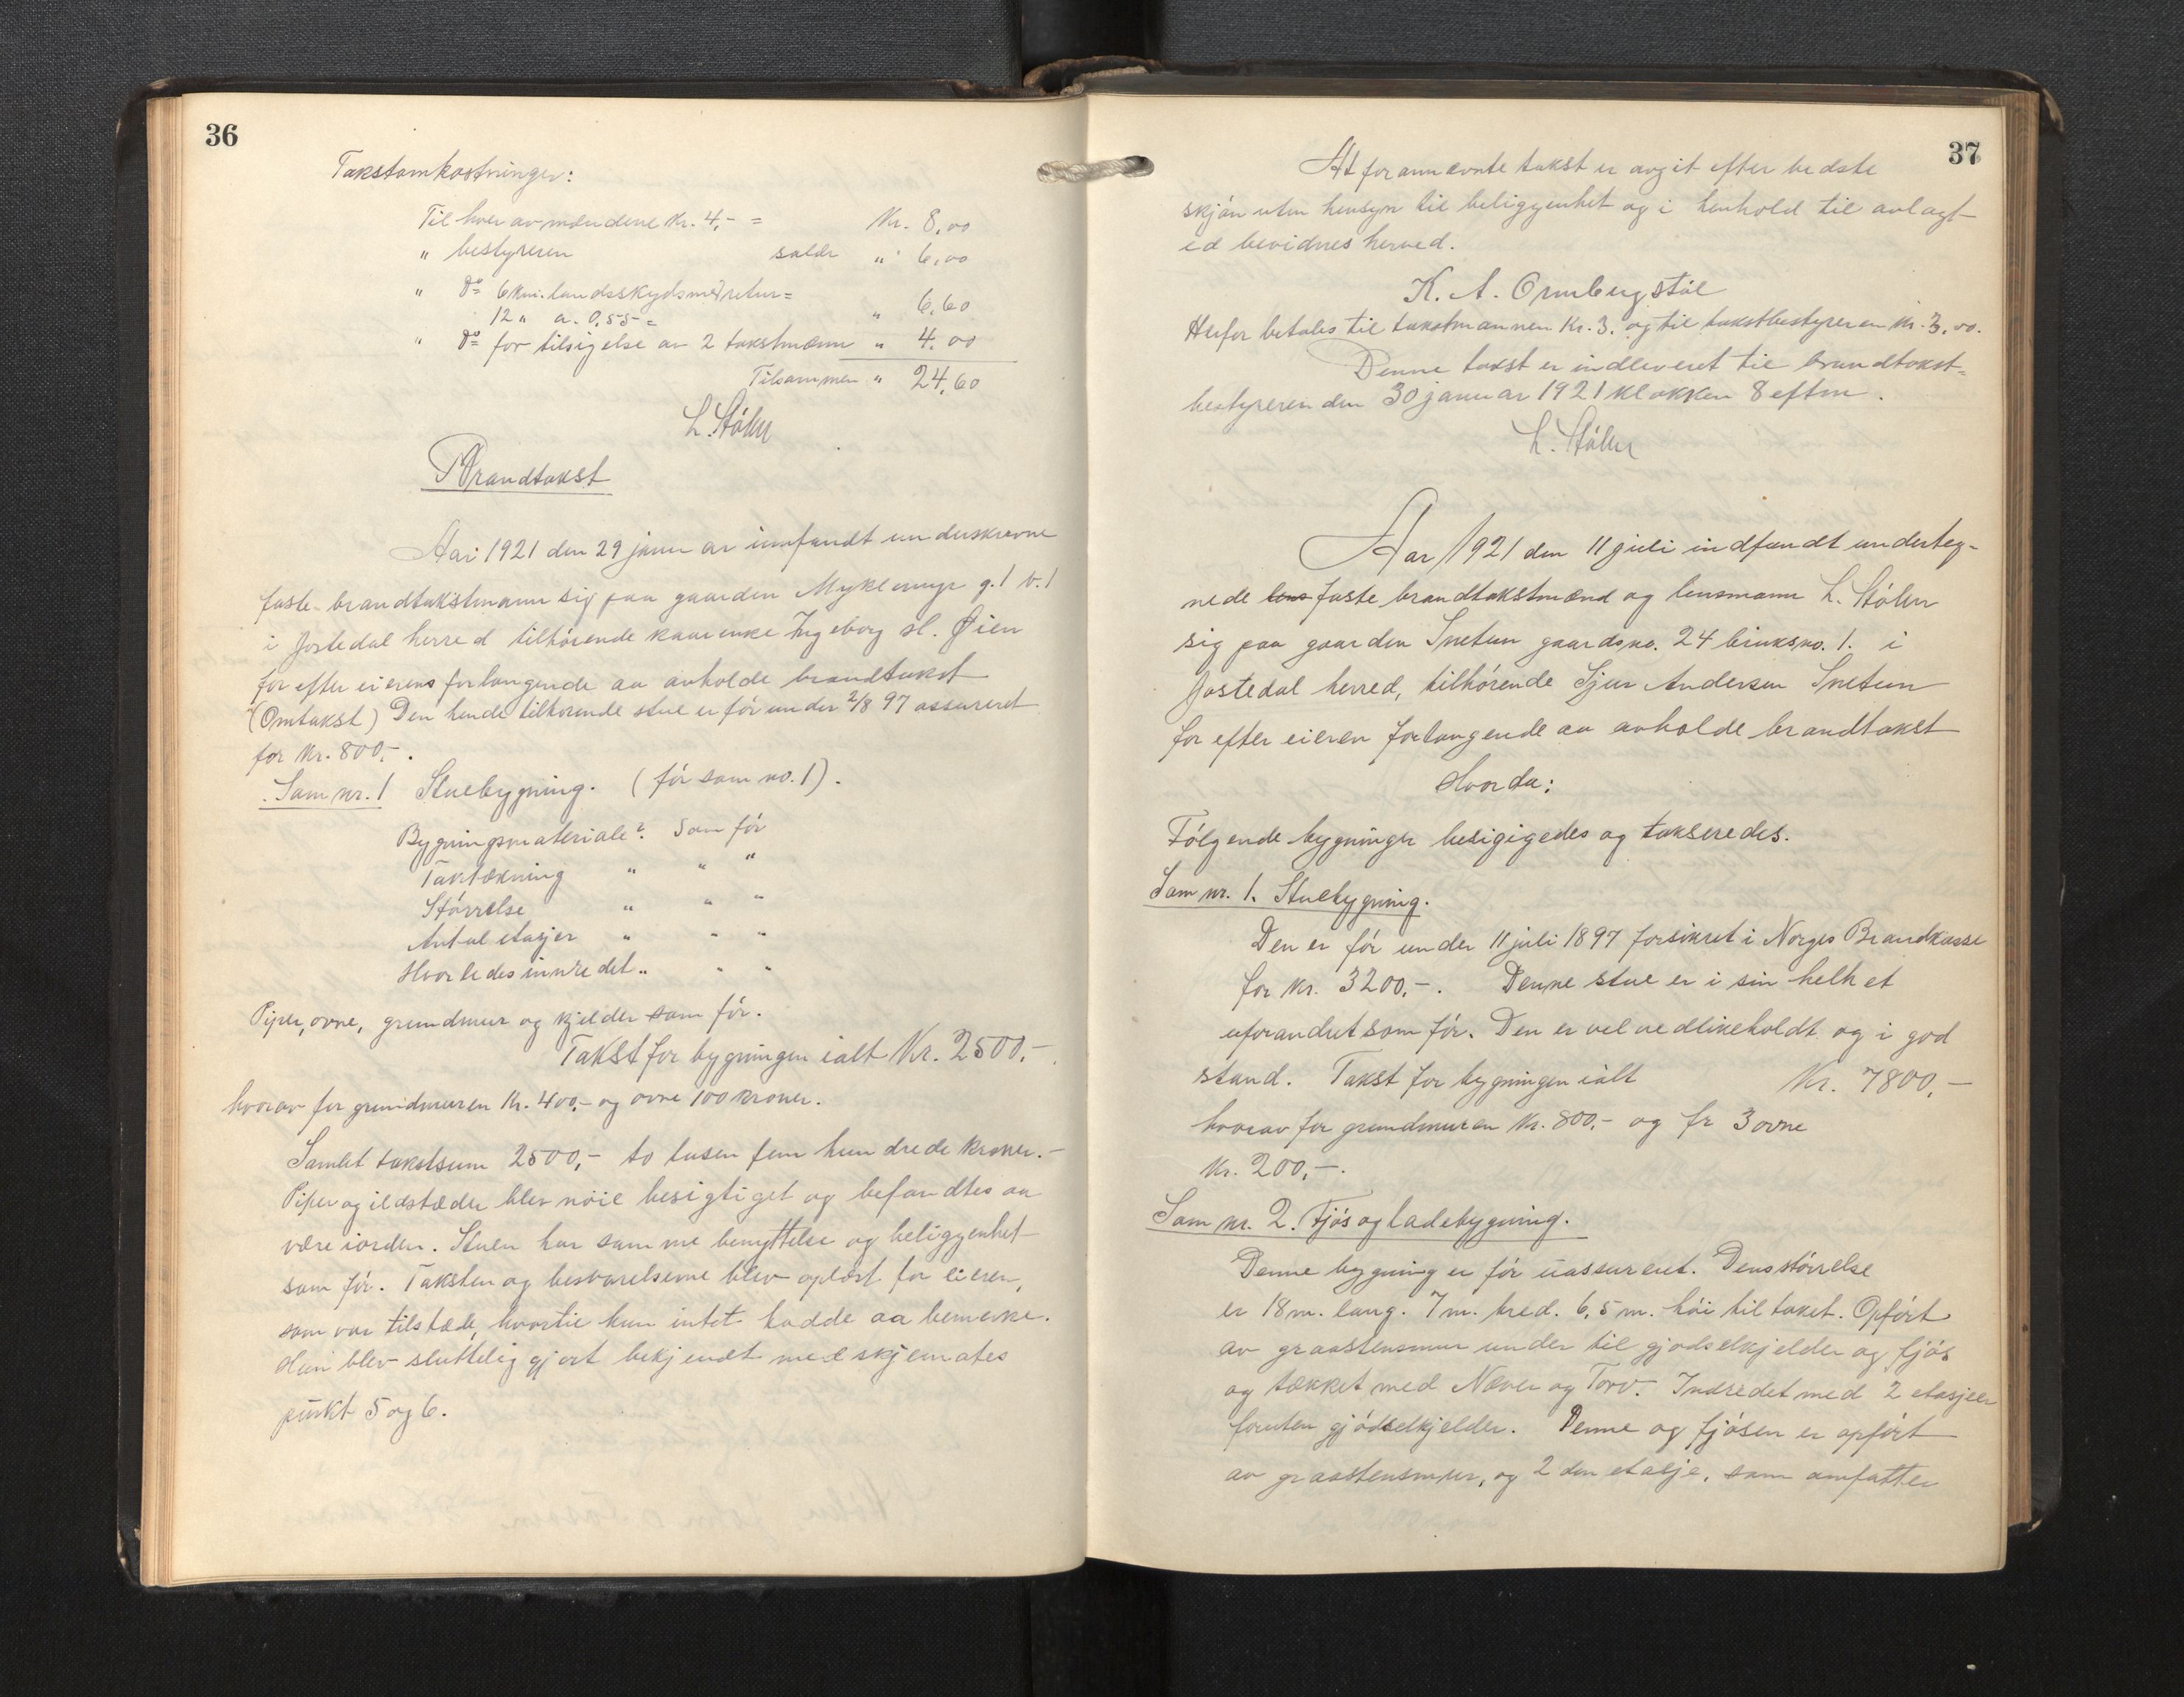 36
Takstomkostninger:
Til hver av mændene Kr. 4,- = Kr. 8,00
" bestyreren salær " 6,00
" Do 6 km. landsskyds med retur =
12 " a. 0,55 = " 6,60
" Do for tilsigelse av 2 takstmænn " 4,00
Tilsammen " 24,60
L. Stölen
Brandtakst
Aar 1921 den 29 januar innfandt underskrevne
faste brandtakstmann sig paa gaarden Myklemyr g. 1 b. 1
i Jostedal herred tilhörende kaarenke Ingeborg sl. Øien
for efter eierens forlangende aa avholde brandtakst
(Omtakst) Den hende tilhörende stue er för under 2/8 97 assureret
for Kr. 800,-.
Sam nr. 1 Stuebygning. (för som no. 1).
Bygningsmateriale? Som för
Taktækning " " "
Störrelse " " "
Antal etasjer " " "
Hvorledes innredet " " "
Piper, ovne, grundmur og kjelder som för.
Takst for bygningen ialt Kr. 2500,-
hvorav for grundmuren Kr. 400,- og ovne 100 kroner.
Samlet takstsum 2500,- to tusen fem hundrede kroner.-
Piper og ildstæder blev nöie besigtiget og befandtes aa
være iorden. Stuen har samme benyttelse og beliggenhet
som för. Taksten og besvarelserne blev oplæst for eieren,
som var tilstæde, hvortil hun intet hadde aa bemerke.
Hun blev sluttelig gjort bekjendt med skjemates
punkt 5 og 6.
37
At forannævnte takst er avgit efter bedste
skjön uten hensyn til beliggenhet og i henhold til avlagt
ed bevidnes herved.
K. A. Ormbergstöl
Herfor betales til takstmannen Kr. 3. og til takstbestyreren Kr. 3,00.
Denne takst er indleveret til brandtakst-
bestyreren den 30 januar 1921 klokken 8 eftm.
L. Stölen
Aar 1921 den 11 juli indfandt underteg-
nede lens faste brandtakstmænd og lensmann L. Stölen
sig paa gaarden Snetun gaardsno. 24 bruksno. 1. i
Jostedal herred, tilhörende Sjur Andersen Snetun
for efter eieren forlangende aa avholde brandtakst
Hvorda:
Fölgende bygninger besigigedes og takseredes.
Sam nr. 1. Stuebygning.
Den er för under 11 juli 1897 forsikret i Norges Brandkasse
for kr. 3200,-. Denne stue er i sin helhet
uforandret som för. Den er vel vedlikeholdt og i god
stand. Takst for bygningen ialt Kr. 7800,-
hvorav for grundmuren Kr. 800,- og for 3 ovne
Kr. 200,-.
Sam nr. 2. Fjös og ladebygning.
Denne bygning er för uassureret. Dens störrelse
er 18 m. lang. 7 m. bred. 6,5 m. höi til taket. Opfört
av graastensmur under til gjödselkjelder og fjös
og tækket med Never og Torv. Indredet med 2 etasjer
foruten gjödselkjelder. Denne og fjösen er opfört
av graastensmur, og 2 den etasje, som omfatter